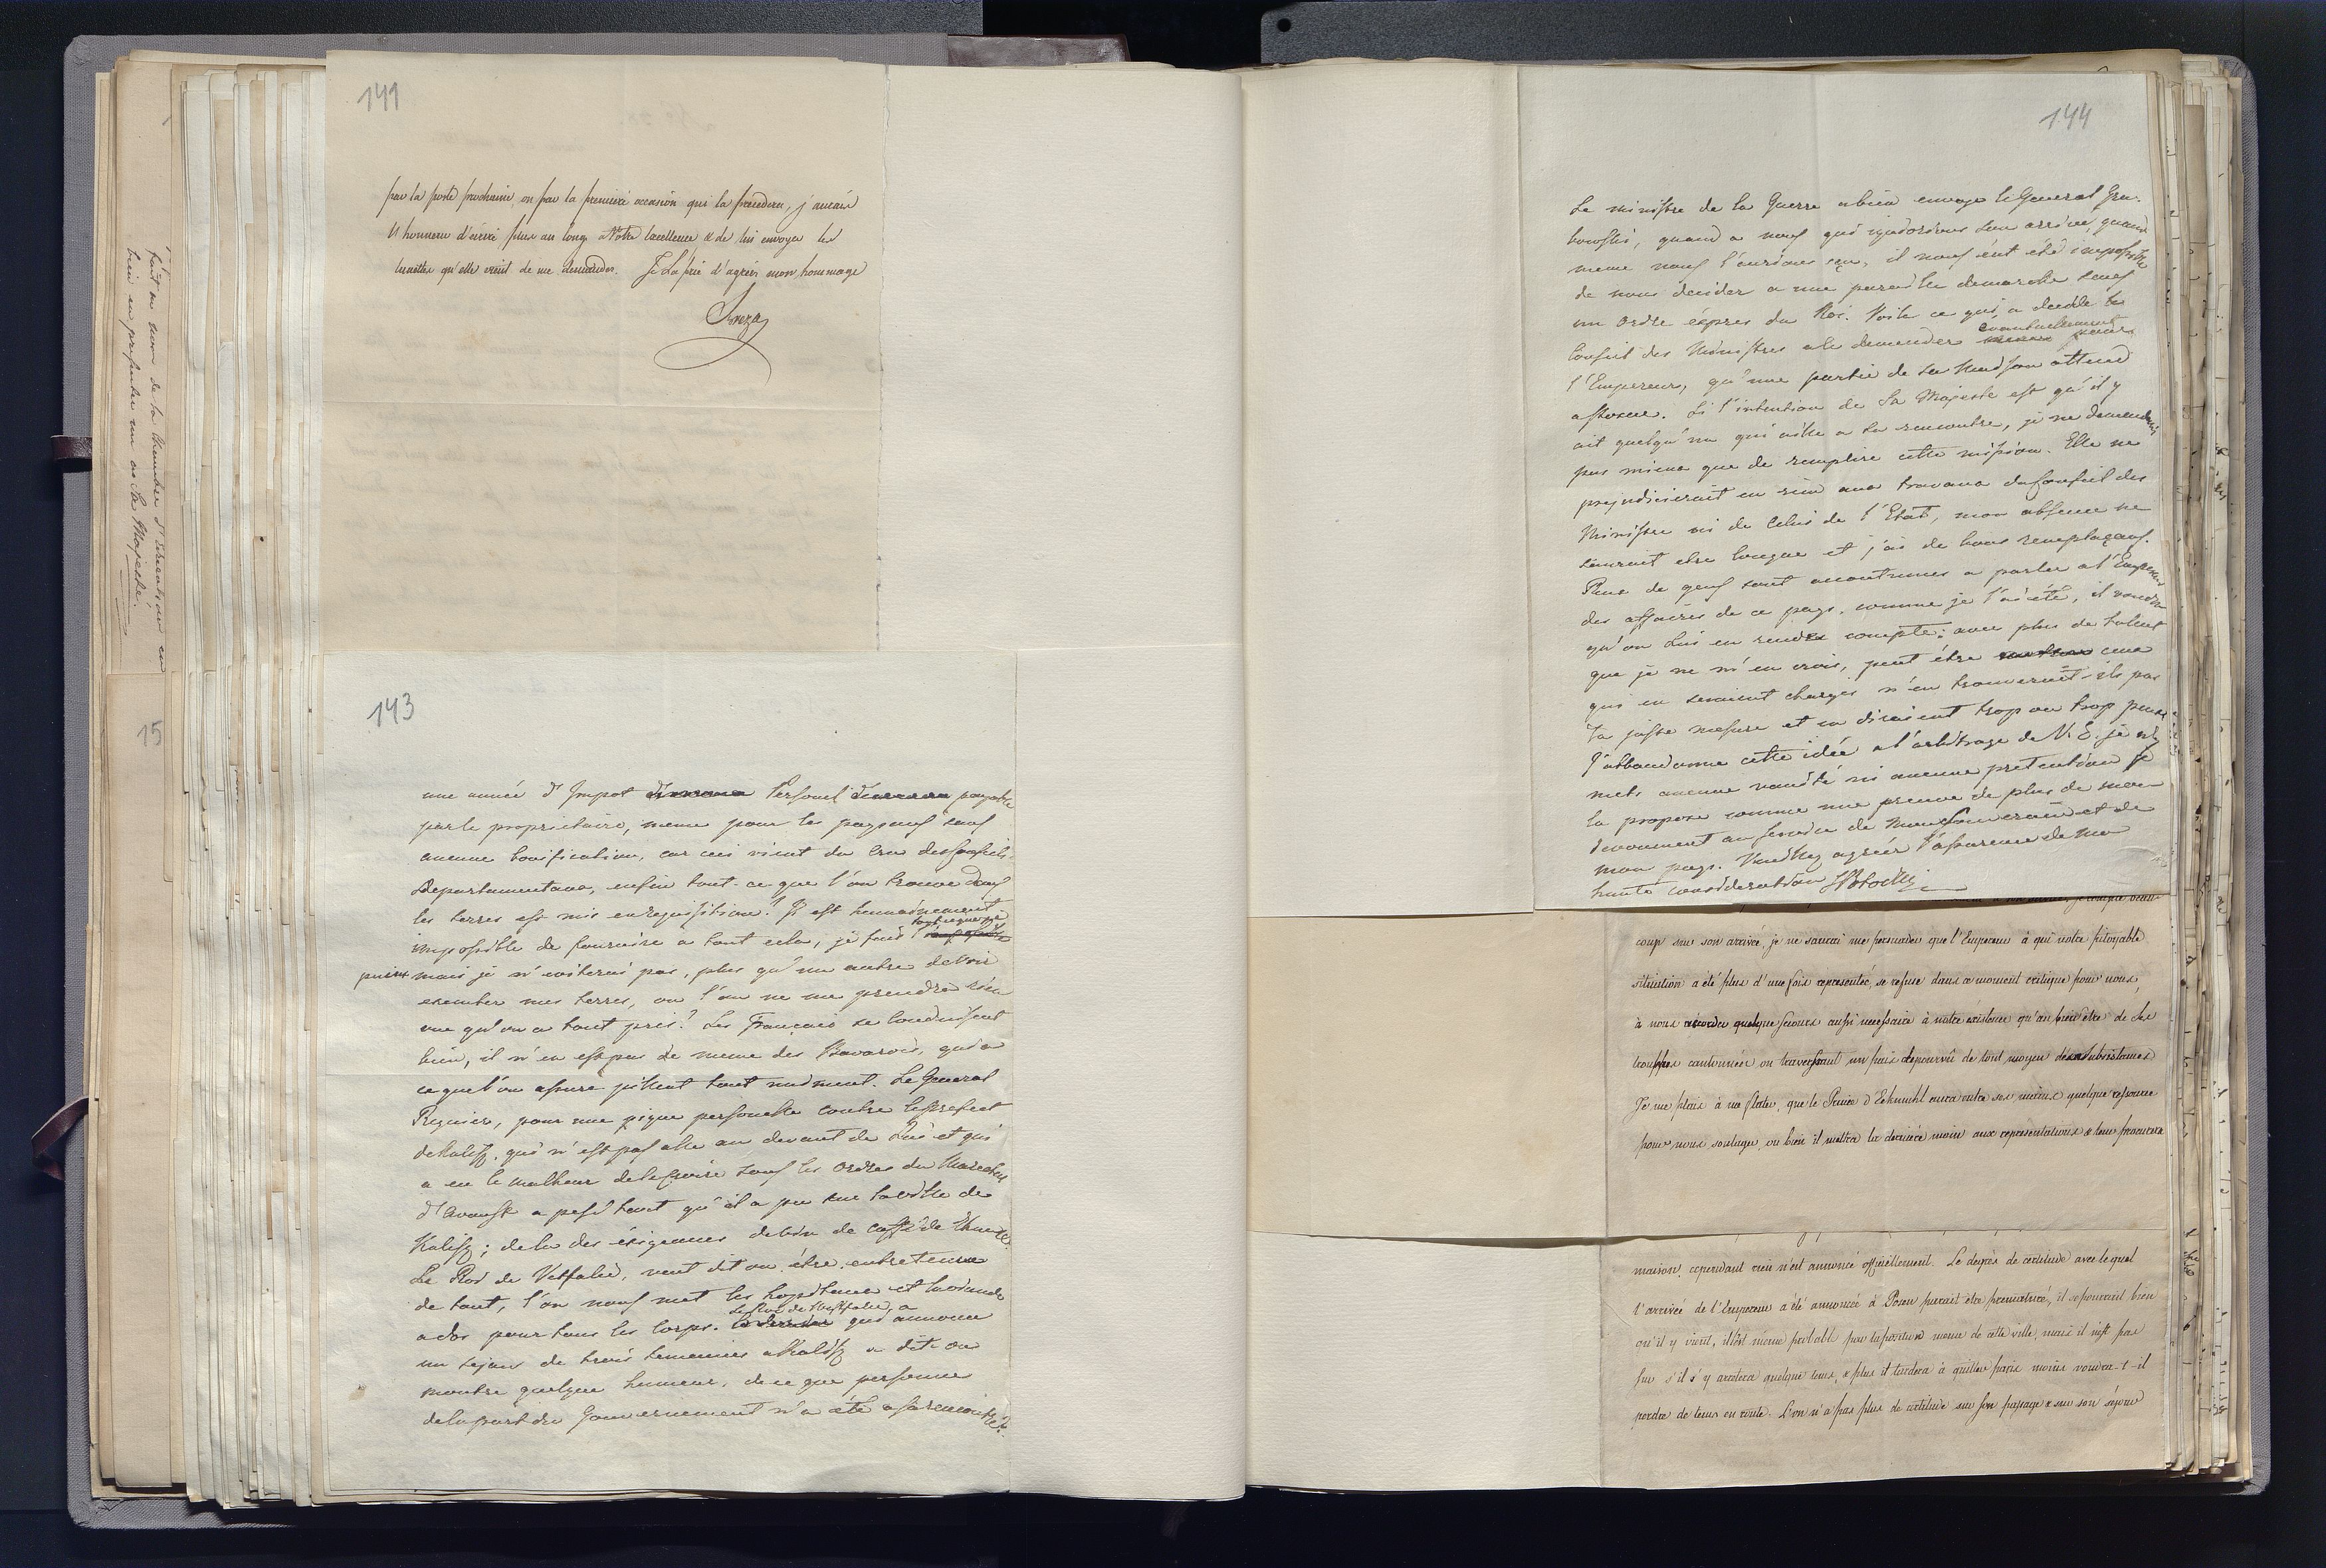 fait au nom de la Chambre d'
bien en presenter un au Sa Majesté.
15
141
par la poste prochaine ou par la premiere occasion qui la precedera, j'aurais
l'honneur d'écrire plus au long à Votre Excellence & de lui envoyer les
qu'elle vient de me demander. Je La prie d'agréer mon hommage
143
une année d'Impot Personel payable
par le proprietaire, meme pour les paysans sans
aucune bonification, car ceci vient du Cru des Conseils
Departamentaux, enfin tout ce que l'on trouve dans
les terres est mis en requisition? Il est humainement
impossible de fournire a tout cela, je fais tout ce que je
puis mais je n'eviterai pas, plus qu'un autre de voir
executer mes terres, ou l'on ne me prendra rien
vue qu'on a tout pris? Les Français se conduisent
bien, il n'en est pas de meme des Bavarois, qui a
ce que l'on assure pillent tout uniment. Le General
Regnier, pour une pique personelle contre le Prefect
de Kalisz, qui n'est pas allé au devant de Lui et qui
a eu le malheur de le croire sous les Ordres du Marechal
d'Avoust a pesé tant qu'il a pu sur la ville de
Kalisz; de la des éxigeances de vin de caffé de
Le Roi de Vetfalie, veut dit on être entretenue
de tout, l'on nous met les hopitaux et la viande
a dos pour tous les Corps. le Roi de Westphalie, a qui annonce
un sejour de trois semaines a Kalisz a dit-on
montré quelque humeur, de ce que personne
de la part du Gouvernement n'a été a sa rencontre.
144
Le ministre de la Guerre a bien envoyé le General Gra-
bowski, quand a nous qui ignorions son arrivée, quand
meme nous l'aurions sçu, il nous eut été impossible
de nous decider a une pareille demarche sans
un Ordre éxpres du Roi. Voila ce qui a decidé le
Conseil des Ministres a le demander eventuelement pour
l'Empereur, qu'une partie de sa Maison attend
a Posen. Si l'intention de Sa Majesté est qu'il y
ait quelqu'un qui aille a sa rencontre, je ne demanderais
pas mieux que de remplire cette mission. Elle ne
prejudicierait en rien aux travaux du Conseil des
Ministre ni de Celui de l'Etat, mon absence ne
saurait etre longue et j'ai de bons remplaçans.
Peu de gens sont accoutumés a parler a l'Empereur
des affaires de ce pays, comme je l'ai été, il voudra
qu'on Lui en rende compte; avec plus de talent
que je ne m'en crois, peut être ceux
qui en seraient charges n'en trouveraient-ils pas
la juste mesure et en diraient trop ou trop peu
J'abbandonne cette idée a l'arbitrage de V. E. je n'y
mets aucune vanité ni aucune pretention je
la propose comme une preuve de plus de mon
devouement au service de Mon Souverain et de
mon pays. Veuillez agréer l'assurence de ma
haute consideration
coup sur son arrivée, je ne saurai me persuader que l'Empereur à qui notre pitoyable
situation a été plus d'une fois representée, se refuse dans ce moment critique pour nous,
à nous accorder quelque secours aussi necessaire à notre existence qu'au bien être de ses
trouppes cantonnées ou traversant un pais depourvû de tout moyen de subsistances
Je me plais à me flater, que le Prince d'Eckmuhl aura entre ses mains quelque ressource
pour nous soulager, ou bien il mettra la derniere main aux representations & leur procurera
maison, cependant rien n'est annoncé officiellement. Le degrès de certitude avec lequel
l'arrivée de l'Empereur a été annoncée à Posen parait être prematuré, il se pourrait bien
qu'il y vient, il est même probable par la position meme de cette ville, mais il n'est pas
sur s'il s'y arretera quelque tems, & plus il tardera à quitter paris moins voudra-t-il
perdre de tems en route. L'on n'a pas plus de certitude sur son passage & sur son séjour